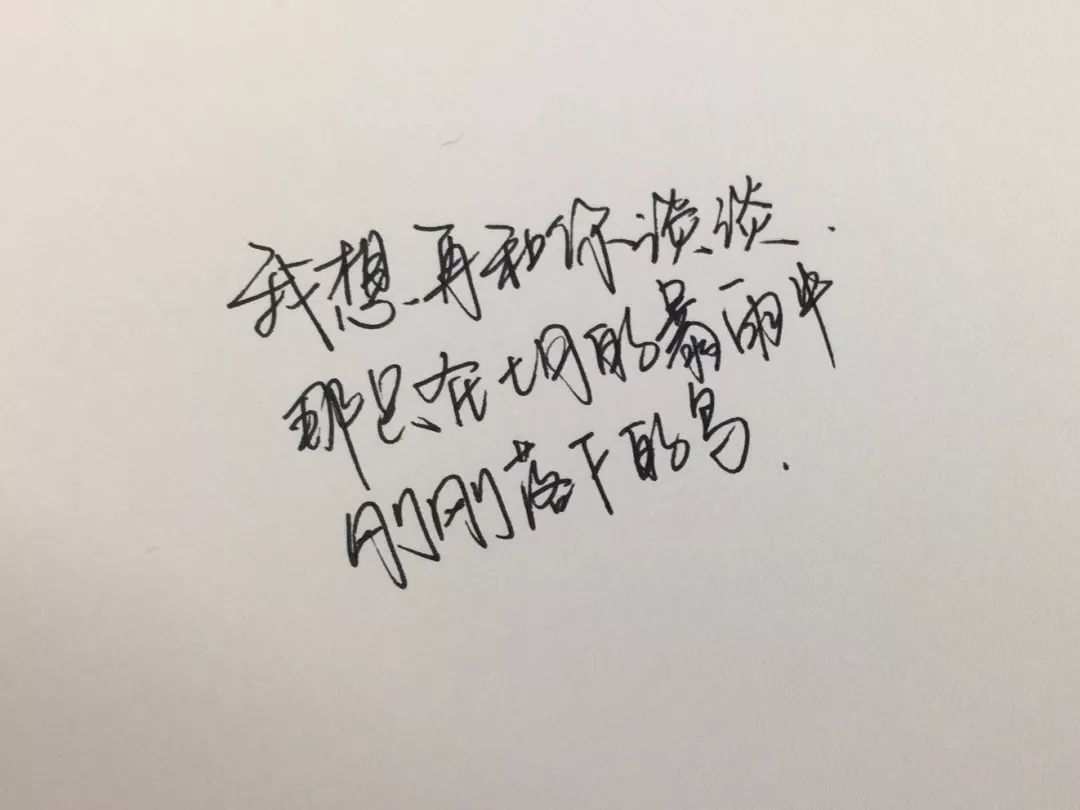 我想再和你谈谈.
那只在七月的暴雨中
刚刚落下的鸟.